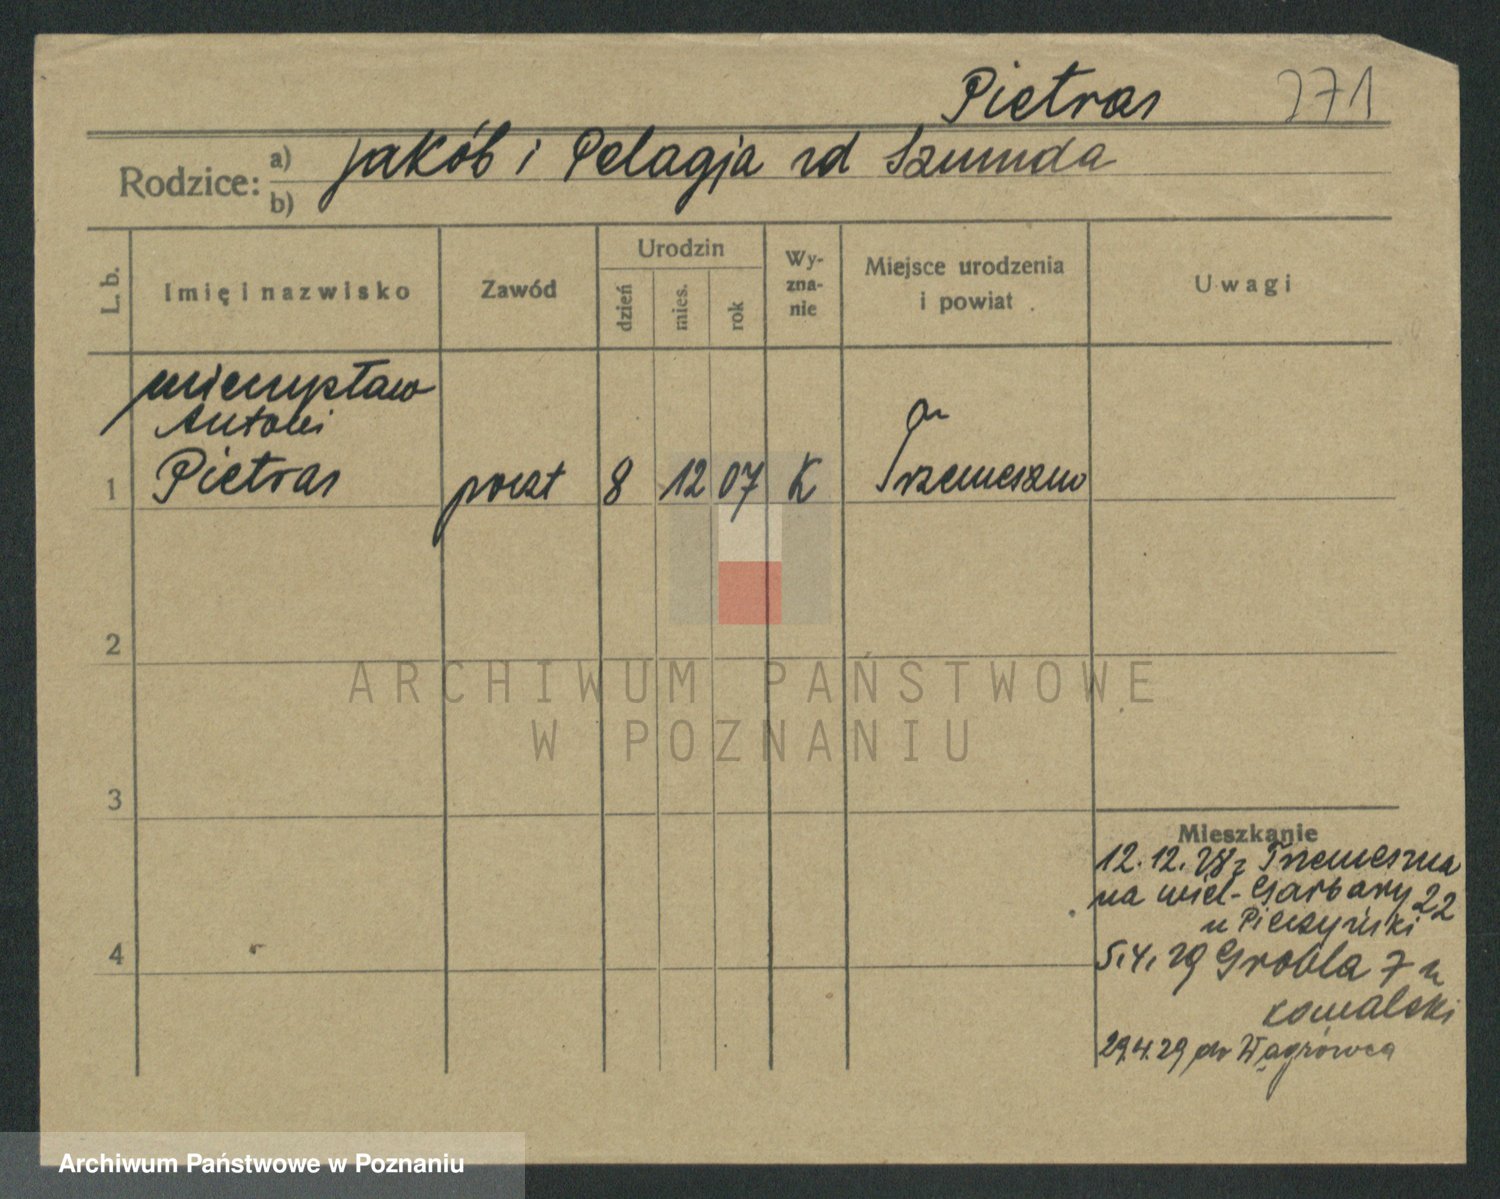 Pietras 271
Rodzice: a) Jakób i Pelagja rd Szmuda
b)
L. b. Imię i nazwisko Zawód Urodzin dzień mies. rok Wy-zna-nie Miejsce urodzenia i powiat Uwagi
Mieczysław
Antoni
1 Pietras poczt 8 12 07 K Trzemeszno
2
ARCHIWUM PAŃSTWOWE
W POZNANIU
3
Mieszkanie
12.12.28 z Trzemeszna
na wiel-Garbary 22
u Pieczyński
4
5.4.29 Grobla 7 u
Kowalski
29.4.29 do Wągrówca
Archiwum Państwowe w Poznaniu